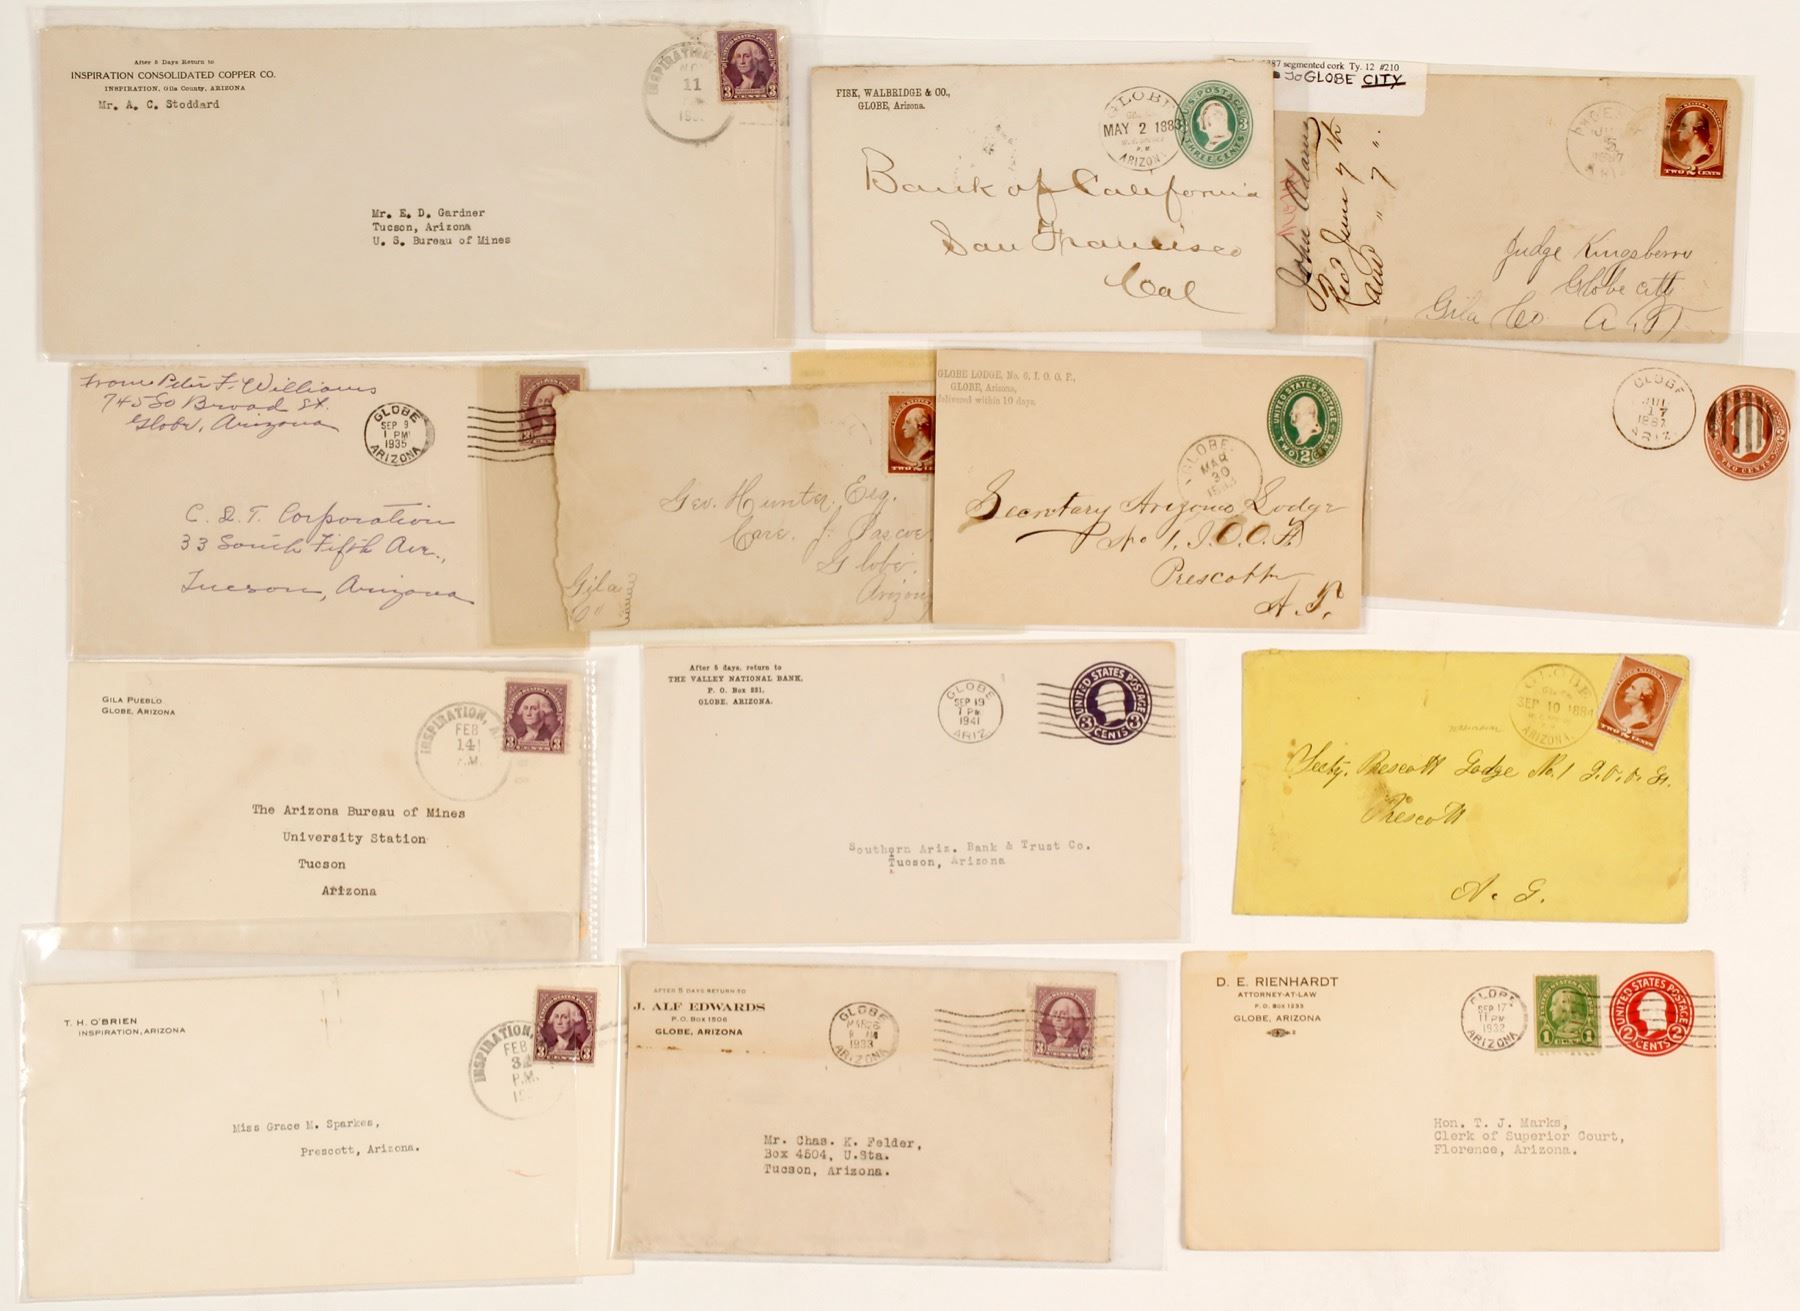 After 5 Days Return to
INSPIRATION CONSOLIDATED COPPER CO.
INSPIRATION, Gila County, ARIZONA
Mr. A. C. Stoddard
INSPIRATION,
11
UNITED STATES POSTAGE
3 CENTS 3
Mr. E. D. Gardner
Tucson, Arizona
U. S. Bureau of Mines
FISK, WALBRIDGE & CO.,
GLOBE, Arizona.
GLOBE
MAY 2 1883
P.M.
ARIZONA
U.S. POSTAGE
THREE CENTS
Bank of California
San Francisco
Cal
1887 segmented cork Ty. 12 #210
to GLOBE CITY
1887
TWO 2 CENTS
John Adams
Recd June 7th
Judge Kingsberry
Globe City
Gila Co A.T.
From Peter F. Williams
745 So Broad St.
Globe, Arizona
GLOBE
SEP 9
1 PM
1935
ARIZONA
C. & T. Corporation
33 South Fifth Ave.,
Tucson, Arizona
TWO 2
Geo. Hunter, Esq.
Care J. Pascoe
Globe,
Arizona
Gila
Co"
GLOBE LODGE, No. 6, I. O. O. F.,
GLOBE, Arizona,
delivered within 10 days.
GLOBE
MAR
30
UNITED STATES POSTAGE
TWO 2 CENTS
Secretary Arizona Lodge
No 1, I.O.O.F.
Prescott
A. T.
GLOBE
17
1887
ARIZ.
TWO CENTS
GILA PUEBLO
GLOBE, ARIZONA
INSPIRATION, A
FEB
14
.M.
3 CENTS 3
The Arizona Bureau of Mines
University Station
Tucson
Arizona
After 5 days, return to
THE VALLEY NATIONAL BANK,
P. O. Box 231,
GLOBE, ARIZONA.
GLOBE
SEP 19
1 PM
1941
ARIZ.
UNITED STATES POSTAGE
3 CENTS 3
Southern Ariz. Bank & Trust Co.
Tucson, Arizona
GLOBE
SEP 10 1884
P.M.
ARIZONA.
TWO 2 CENTS
Secty. Prescott Lodge No. 1 I.O.O.F.
Prescott
T. H. O'BRIEN
INSPIRATION, ARIZONA
INSPIRATION,
FEB
P.M.
3 CENTS 3
Miss Grace M. Sparkes,
Prescott, Arizona.
AFTER 5 DAYS RETURN TO
J. ALF EDWARDS
P.O. BOX 1506
GLOBE, ARIZONA
GLOBE
MAR 26
1933
ARIZONA
3 CENTS 3
Mr. Chas. K. Felder,
Box 4504, U.Sta.
Tucson, Arizona.
D. E. RIENHARDT
ATTORNEY-AT-LAW
P.O. BOX 1233
GLOBE, ARIZONA
GLOBE
SEP 17
11 PM
1932
ARIZONA
1 CENT 1
UNITED STATES POSTAGE
2 CENTS 2
Hon. T. J. Marks,
Clerk of Superior Court,
Florence, Arizona.